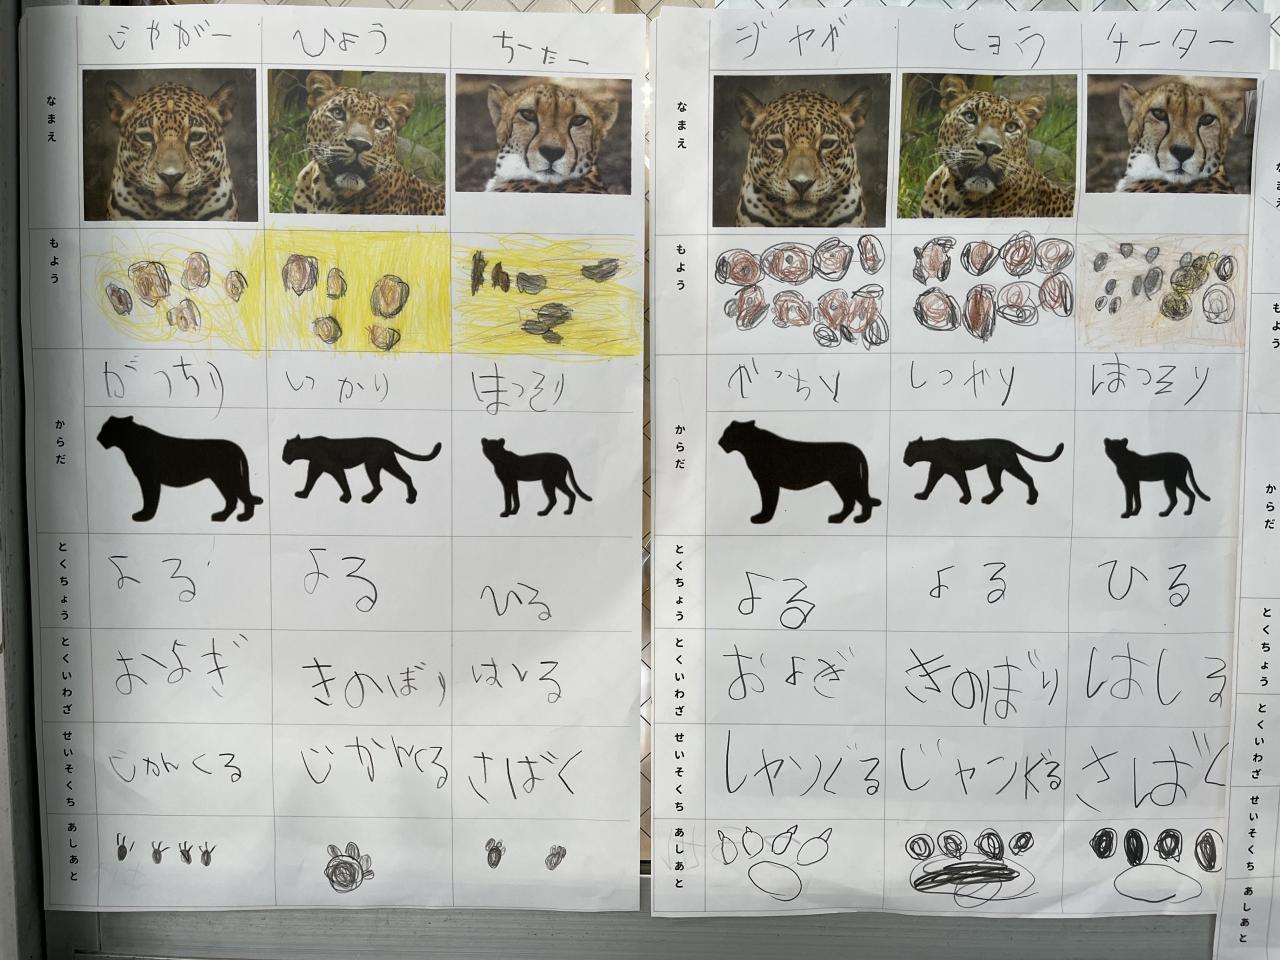 じゃがー ひょう ちーたー
なまえ
もよう
がっちり しっかり ほっそり
からだ
とくちょう よる よる ひる
とくいわざ およぎ きのぼり はしる
せいそくち じゃんくる じかんくる さばく
あしあと
ジャガ ヒョウ チーター
なまえ
もよう
がっちり しっかり ほっそり
からだ
とくちょう よる よる ひる
とくいわざ およぎ きのばり はしる
せいそくち しゃんぐる じャンぐる さばく
あしあと
なまえ
もよう
からだ
とくちょう
とくいわざ
せいそくち
あしあと